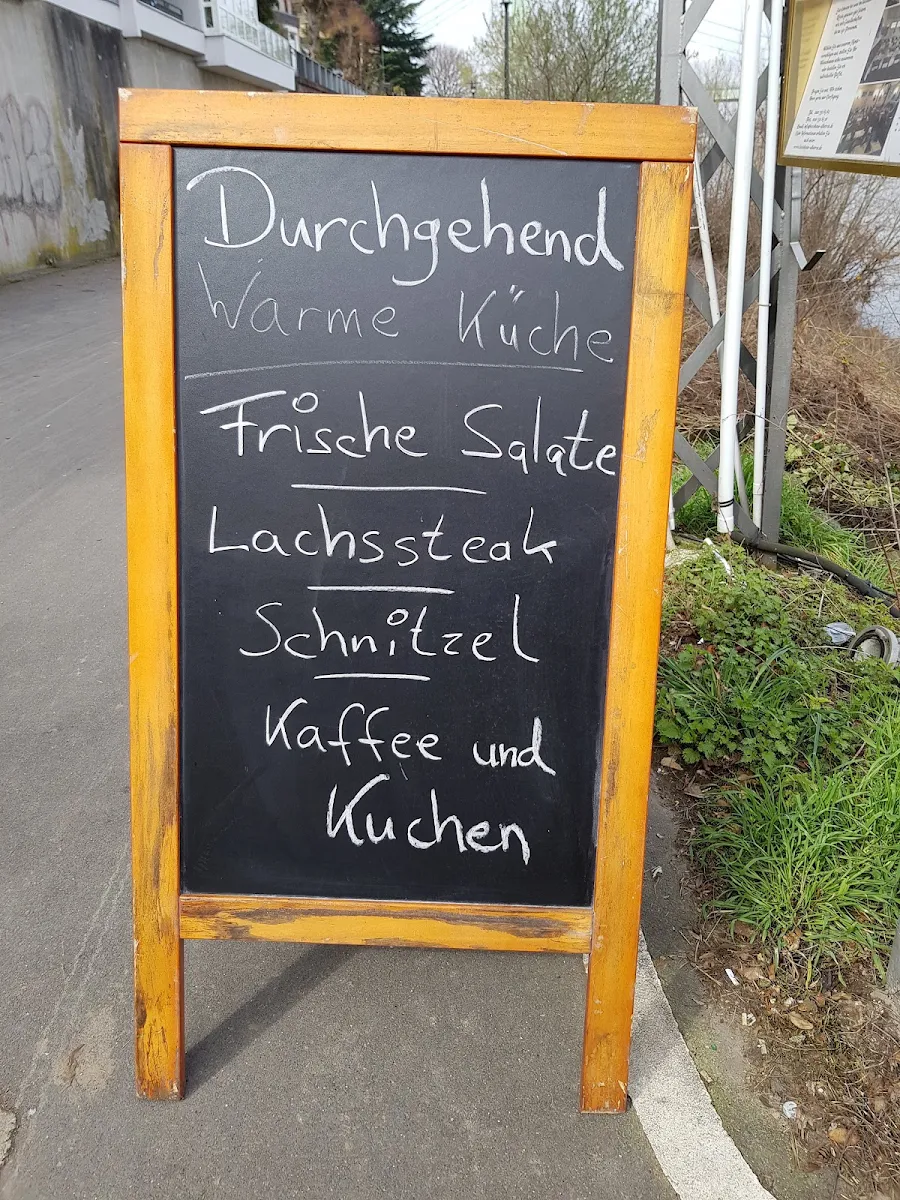 Durchgehend
Warme Küche
Frische Salate
Lachssteak
Schnitzel
Kaffee und
Kuchen